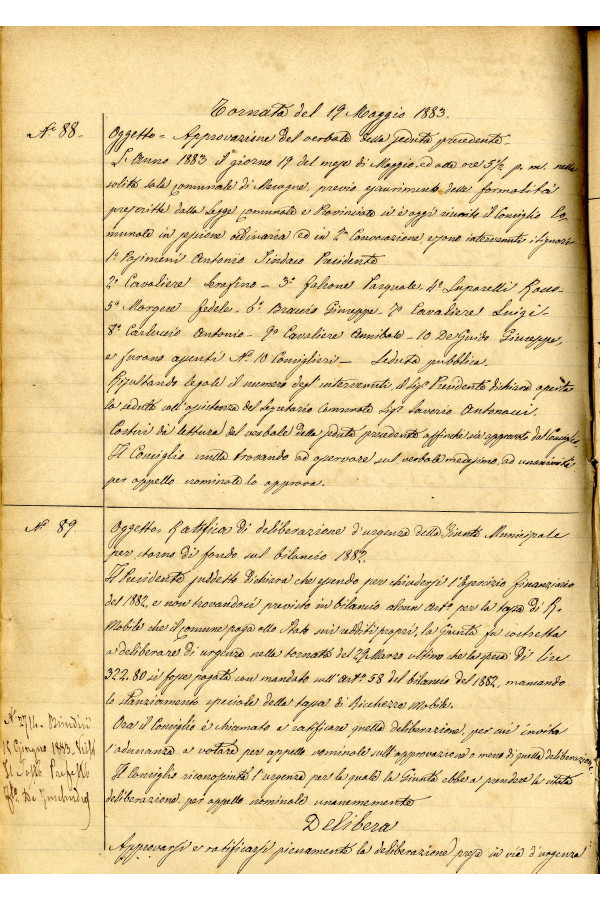 Tornata del 19 Maggio 1883.
N.º 88.
Oggetto = Approvazione del verbale della seduta precedente.
L'Anno 1883 il giorno 19 del mese di Maggio ed alle ore 5½ p. m. nella
solita sala comunale di Mesagne, previo esaurimento delle formalità
prescritte dalla Legge comunale e Provinciale si è oggi riunito il Consiglio Co-
munale in sessione ordinaria ed in 2ª Convocazione, e sono intervenuti i Signori
1º Pasimeni Antonio Sindaco Presidente
2º Cavaliere Serafino - 3º Falcone Pasquale. 4º Luparelli Rocco -
5º Morgese Fedele. 6º Braccio Giuseppe. 7º Cavaliere Luigi -
8º Carluccio Antonio - 9º Cavaliere Annibale - 10 De Guido Giuseppe,
e furono assenti N.º 10 Consiglieri — Seduta pubblica.
Risultando legale il numero degl'intervenuti, il Sig. Presidente dichiara aperta
la seduta coll'assistenza del Segretario Comunale Sig. Saverio Antonucci.
di lettura del verbale della seduta precedente affinchè sia approvato dal Consiglio
Il Consiglio nulla trovando ad osservare sul verbale medesimo, ad unanimità
per appello nominale lo approva.
N.º 89.
Oggetto = Ratifica di deliberazione d'urgenza della Giunta Municipale
per storno di fondo sul bilancio 1882.
Il Presidente suddetto dichiara che essendo per chiudersi l'Esercizio finanziario
del 1882, e non trovandosi previsto in bilancio alcun arto per la tassa di R.
Mobile che il comune paga allo Stato sui redditi proprî, la Giunta fu costretta
a deliberare di urgenza nella tornata del 29 Marzo ultimo che la spesa di lire
322.80 si fosse pagata con mandato sull'Artº 58 del bilancio del 1882, mancando
lo stanziamento speciale della tassa di Ricchezza Mobile.
Ora il Consiglio è chiamato a ratificare quella deliberazione, per cui invita
l'adunanza a votare per appello nominale sull'approvazione o meno di quella deliberazione
Il Consiglio riconosciuta l'urgenza per la quale la Giunta ebbe a prendere la citata
deliberazione per appello nominale unanimemente
Delibera
Approvarsi e ratificarsi pienamente la deliberazione presa in via d'urgenza
N.º 7714 - Brindisi
15 Giugno 1883. Visto
Il Sotto Prefetto